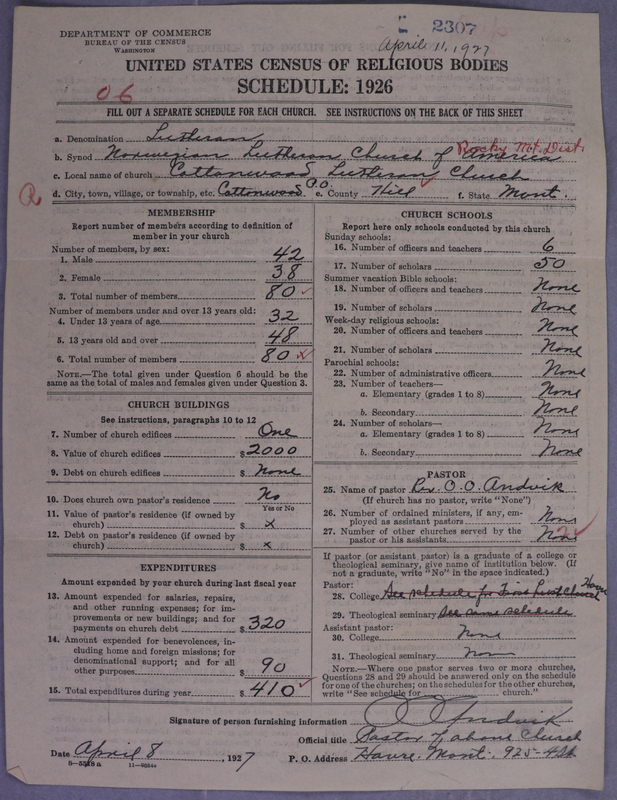 DEPARTMENT OF COMMERCE
BUREAU OF THE CENSUS
WASHINGTON
2307
April 11, 1927
UNITED STATES CENSUS OF RELIGIOUS BODIES
SCHEDULE: 1926
06
FILL OUT A SEPARATE SCHEDULE FOR EACH CHURCH. SEE INSTRUCTIONS ON THE BACK OF THIS SHEET
a. Denomination Lutheran
Rocky Mt. Dist.
b. Synod Norwegian Lutheran Church of America
c. Local name of church Cottonwood Lutheran Church
d. City, town, village, or township, etc. Cottonwood P.O. e. County Hill f. State Mont.
MEMBERSHIP
Report number of members according to definition of
member in your church
Number of members, by sex:
1. Male 42
2. Female 38
3. Total number of members 80
Number of members under and over 13 years old:
4. Under 13 years of age 32
5. 13 years old and over 48
6. Total number of members 80
NOTE.—The total given under Question 6 should be
same as the total of males and females given under Question 3.
CHURCH BUILDINGS
See instructions, paragraphs 10 to 12
7. Number of church edifices One
8. Value of church edifices $ 2000
9. Debt on church edifices $ None
10. Does church own pastor's residence No
Yes or No
11. Value of pastor's residence (if owned by
church) $ x
12. Debt on pastor's residence (if owned by
church) $ x
EXPENDITURES
Amount expended by your church during last fiscal year
13. Amount expended for salaries, repairs,
and other running expenses; for im-
provements or new buildings; and for
payments on church debt $ 320
14. Amount expended for benevolences, in-
cluding home and foreign missions; for
denominational support; and for all
other purposes $ 90
15. Total expenditures during year $ 410
CHURCH SCHOOLS
Report here only schools conducted by this church
Sunday schools:
16. Number of officers and teachers 6
17. Number of scholars 50
Summer vacation Bible schools:
18. Number of officers and teachers None
19. Number of scholars None
Week-day religious schools:
20. Number of officers and teachers None
21. Number of scholars None
Parochial schools:
22. Number of administrative officers None
23. Number of teachers—
a. Elementary (grades 1 to 8) None
b. Secondary None
24. Number of scholars—
a. Elementary (grades 1 to 8) None
b. Secondary None
PASTOR
25. Name of pastor Rev. O. O. Andvik
(If church has no pastor, write "None")
26. Number of ordained ministers, if any, em-
ployed as assistant pastors None
27. Number of other churches served by the
pastor or his assistants None
If pastor (or assistant pastor) is a graduate of a college or
theological seminary, give name of institution below. (If
not a graduate, write "No" in the space indicated.)
Pastor:
28. College See schedule for First Luth Church
29. Theological seminary See same schedule
Assistant pastor:
30. College None
31. Theological seminary None
NOTE.—Where one pastor serves two or more churches,
Questions 28 and 29 should be answered only on the schedule
for one of the churches; on the schedules for the other churches,
write "See schedule for church."
Signature of person furnishing information O O Andvik
Official title Pastor of above Church
Date April 8, 1927 P. O. Address Havre, Mont. 925-4th